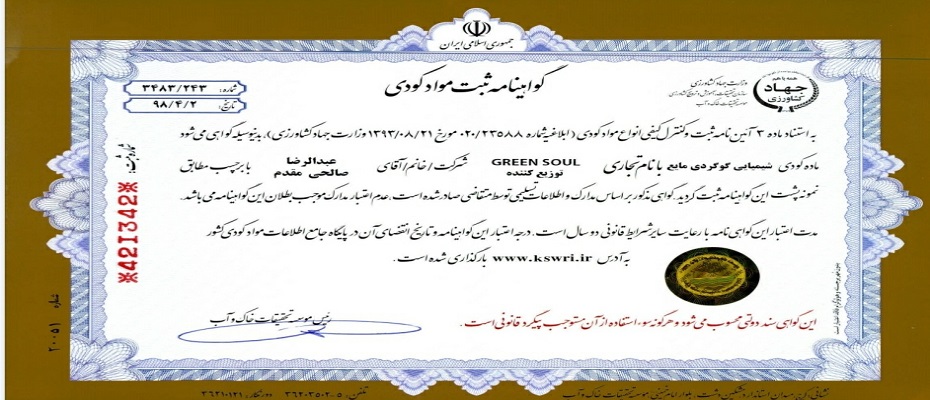 جمهوری اسلامی ایران
گواهینامه ثبت مواد کودی
شماره: ۳۴۸۳/۲۴۳
تاریخ: ۹۸/۴/۲
همه با هم
جهاد
کشاورزی
وزارت جهاد کشاورزی
سازمان تحقیقات، آموزش و ترویج کشاورزی
موسسه تحقیقات خاک و آب
به استناد ماده ۳ آئین نامه ثبت و کنترل کیفی انواع مواد کودی (ابلاغیه شماره ۰۲۰/۲۳۵۸۸ مورخ ۱۳۹۳/۰۸/۲۱ وزارت جهاد کشاورزی)، بدینوسیله گواهی می شود
ماده کودی شیمیایی گوگردی مایع با نام تجاری GREEN SOUL توزیع کننده شرکت/خانم/آقای عبدالرضا صالحی مقدم با برچسب مطابق
نمونه پشت این گواهینامه ثبت گردید. گواهی مذکور بر اساس مدارک و اطلاعات تسلیمی توسط متقاضی صادر شده است. عدم اعتبار مدارک موجب بطلان این گواهینامه می باشد.
مدت اعتبار این گواهی نامه با رعایت سایر شرایط قانونی دو سال است. درجه اعتبار این گواهینامه و تاریخ انقضای آن در پایگاه جامع اطلاعات مواد کودی کشور
به آدرس www.kswri.ir بارگذاری شده است.
این گواهی سند دولتی محسوب می شود و هرگونه سوء استفاده از آن مستوجب پیگرد قانونی است.
رئیس موسسه تحقیقات خاک و آب
شماره ثبت:
*421342*
شماره ۲۰۰۵۱
تلفن: ۳۶۲۰۳۵۰۲-۵ دورنگار: ۳۶۲۱۰۱۲۱